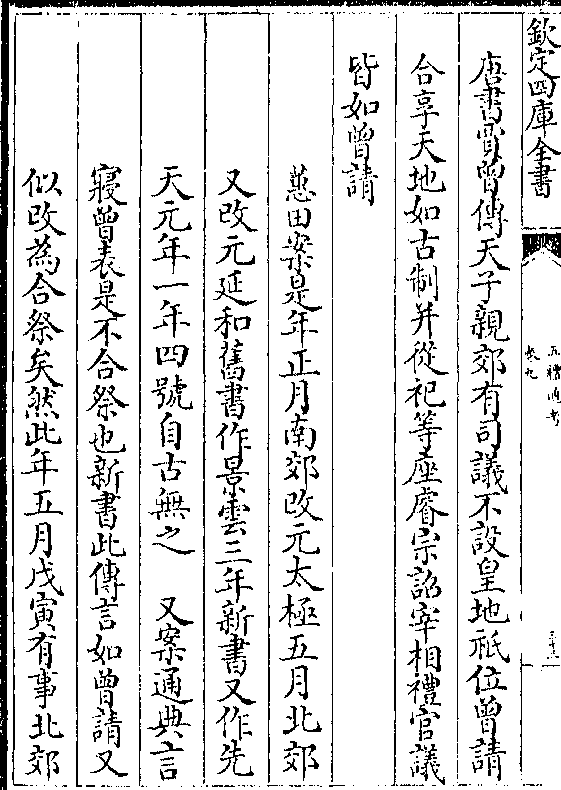 欽定四庫全書
五禮通考
卷九
三十三
唐書賈曾傳天子親郊有司議不設皇地祇位曾請
合享天地如古制并從祀等座睿宗詔宰相禮官議
皆如曾請
蕙田案是年正月南郊改元太極五月北郊
又改元延和舊書作景雲三年新書又作先
天元年一年四號自古無之　又案通典言
寢曾表是不合祭也新書此傳言如曾請又
似改為合祭矣然此年五月戊寅有事北郊